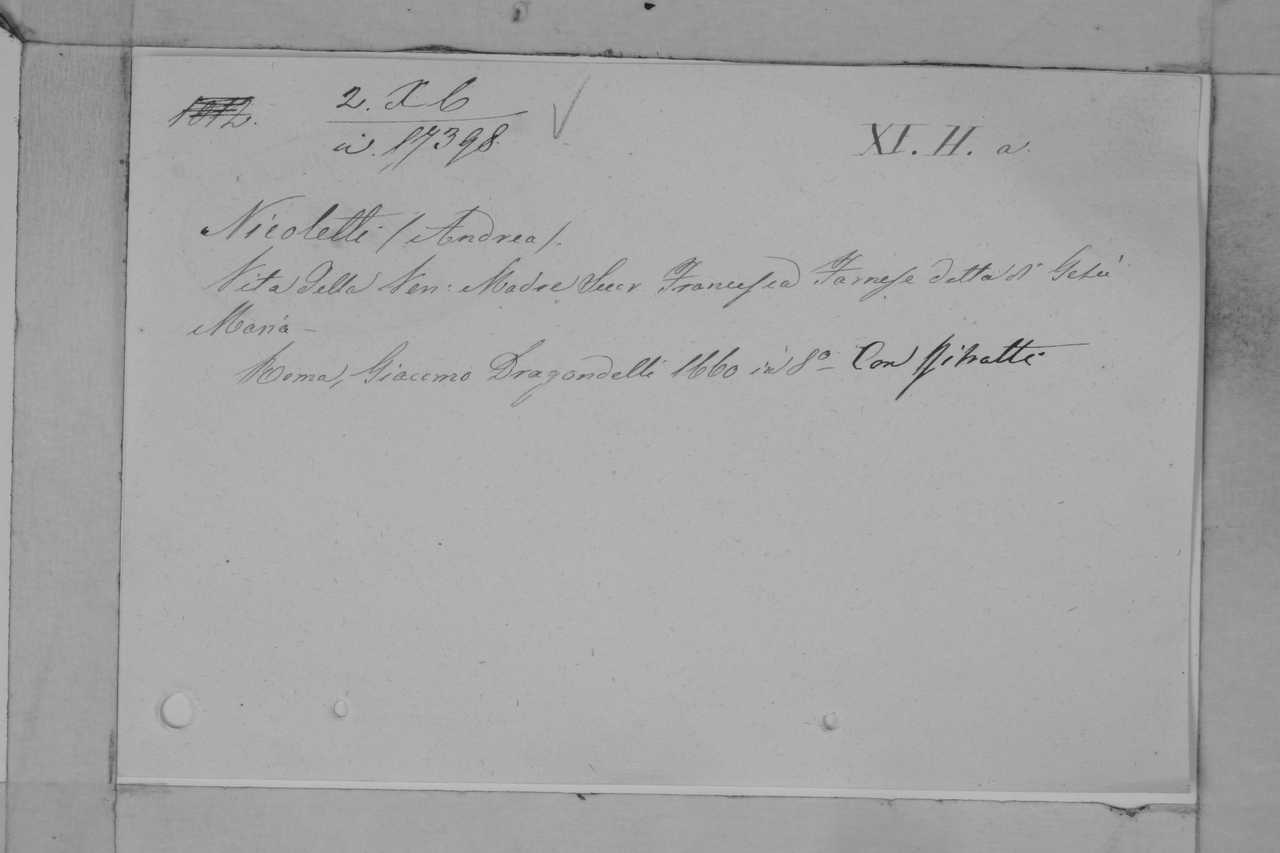 1812. 2. X b XI. H. a.
in. 17398
Nicoletti (Andrea).
Vita della Ven: Madre Suor Francesca Farnese detta di Gesù
Maria –
Roma, Giacomo Dragondelli 1660 in 8º – Con Ritratti